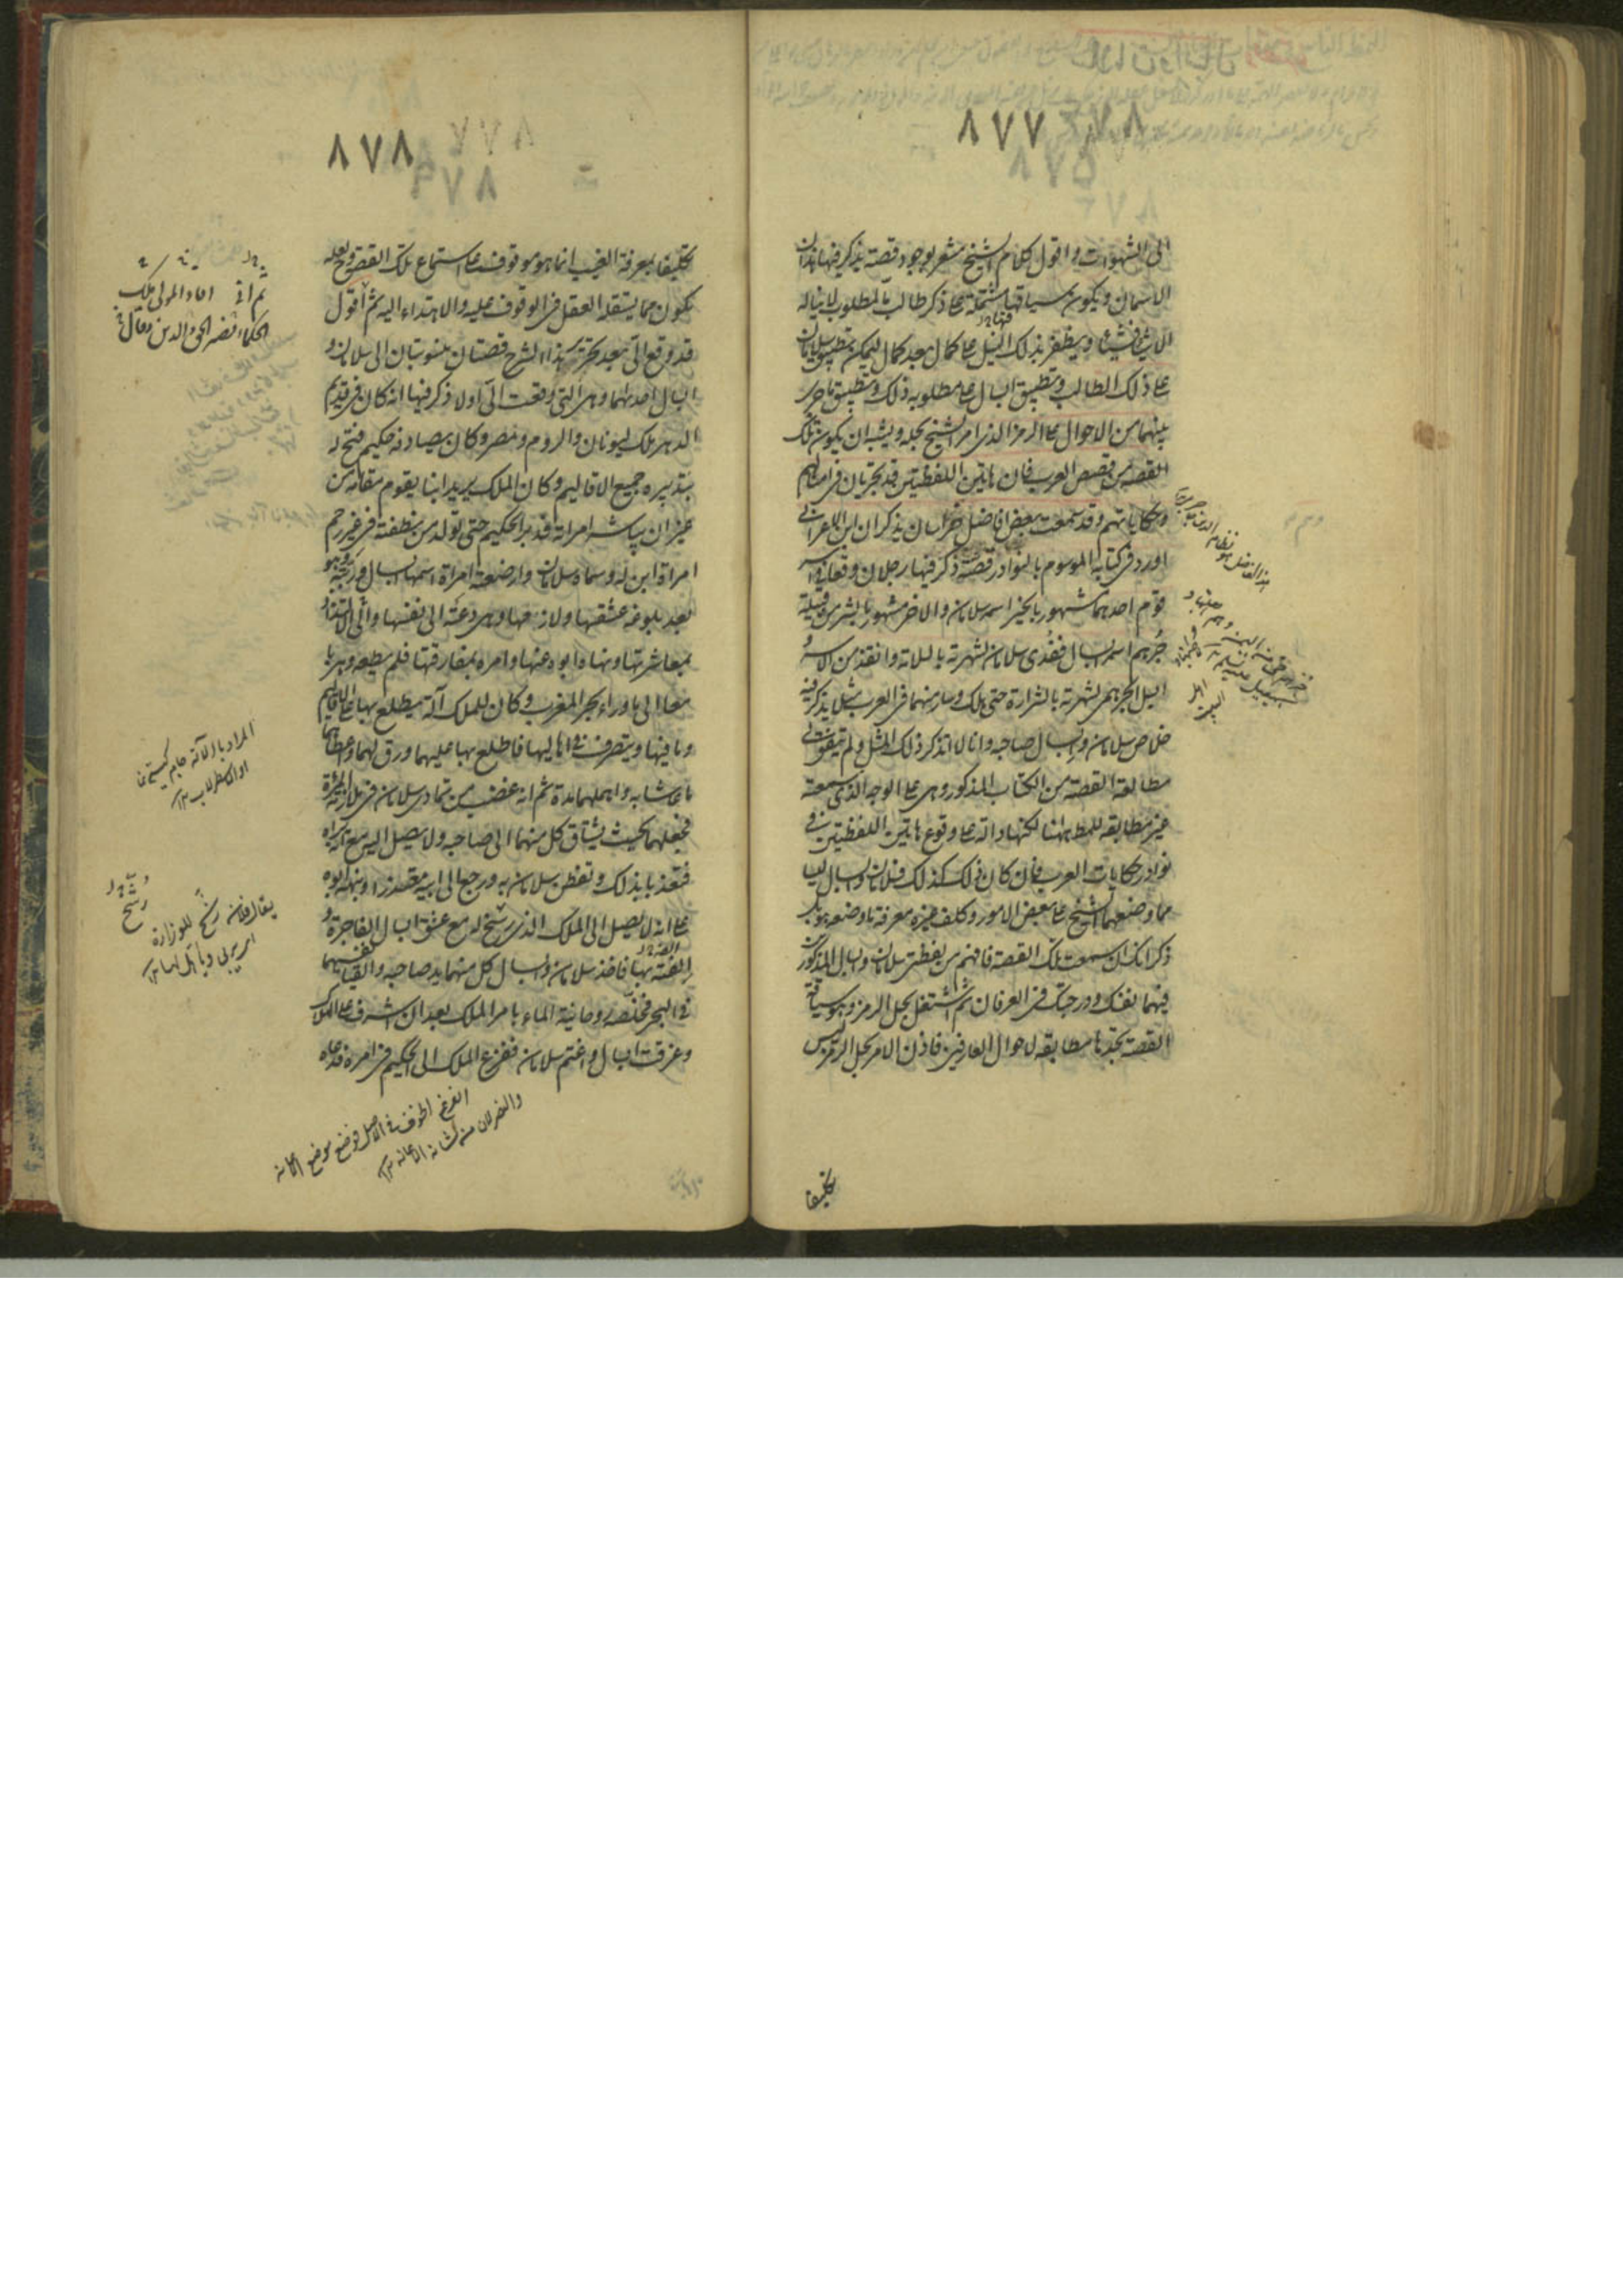 ٨٧٧
الى الشهوات واقول كلام الشيخ مشعر بوجود قصة يذكر فيها هذان
الاسمان ويكون سياقها مشتملة على ذكر طالب ما لمطلوب لا يناله
الا شيئا فشيئا ويظفر بذلك النيل على كمال بعد كمال ليمكن تطبيق سلامان
على ذلك الطالب وتطبيق ابسال على مطلوبه ذلك وتطبيق ما جرى
بينهما من الاحوال على الرمز الذى امر الشيخ بحله ويشبه ان يكون تلك
القصة من قصص العرب فان هاتين اللفظتين قد تجريان فى امثالهم
وحكاياتهم وقد سمعت بعض افاضل خراسان يذكر ان ابن الاعرابى
اورد فى كتابه الموسوم بالنوادر قصة ذكر فيها رجلان وقعا فى اسر
قوم احدهما مشهور بالخير اسمه سلامان والاخر مشهور بالشر من قبيلة
جُرهم اسمه ابسال ففُدى سلامان لشهرته بالسلامة وانقذ من الاسر
ابسل الجرهمى لشهرته بالشرارة حتى هلك وسار منهما فى العرب مثل يذكر فيه
خلاص سلامان وابسال صاحبه وانا لا اتذكر ذلك المثل ولم يتفق لى
مطالعة القصة من الكتاب المذكور وهى على الوجه الذى سمعته
غير مطابقة للمط ههنا لكنها دالة على وقوع هاتين اللفظتين فى
نوادر حكايات العرب فان كان ذلك كذلك فسلامان وابسال ليسا
مما وضعهما الشيخ على بعض الامور وكلف غيره معرفة ما وضعه هو بل
ذكر انك ان سمعت تلك القصة فافهم من لفظتى سلامان وابسال المذكورين
فيهما نفسك ودرجتك فى العرفان ثم اشتغل بحل الرمز وهو سياقة
القصة تجدها مطابقة لاحوال العارفين فاذن الامر بحل الرمز ليس
تكليفا
٨٧٨
تكليفا بمعرفة الغيب انما هو موقوف على استماع تلك القصة وح لعله
يكون مما يستقل العقل فى الوقوف عليه والاهتداء اليه ثم اقول
قد وقع الىّ بعد تحرير هذا الشرح قصتان منسوبتان الى سلامان و
ابسال احدىهما وهى التى وقعت الىّ اولا ذكر فيها انه كان فى قديم
الدهر ملك ليونان والروم ومصر وكان يصادقه حكيم فتح له
بتدبيره جميع الاقاليم وكان الملك يريد ابنا يقوم مقامه من
غير ان يباشر امراة فدبر الحكيم حتى تولد من نطفته فى غير رحم
امراة ابن له وسماه سلامان وارضعته امراة اسمها ابسال وربّته وهو
بعد بلوغه عشقها ولازمها وهى دعته الى نفسها والى الالتذاذ
بمعاشرتها ونهاه ابوه عنها وامره بمفارقتها فلم يطعه وهربا
معا الى ماوراء بحر المغرب وكان للملك آلة يطلع بها على الاقاليم
وما فيها ويتصرف فى اهاليها فاطلع بها عليهما ورق لهما واعطاهما
ما عاشا به واهملهما مدة ثم انه غضب من تمادى سلامان فى ملازمة المراة
فجعلهما بحيث يشتاق كل منهما الى صاحبه ولا يصل اليه مع انه يراه
فتعذبا بذلك وتفطن سلامان به ورجع الى ابيه معتذرا ونبهه ابوه
على انه لا يصل الى الملك الذى رشح له مع عشقه ابسال الفاجرة و
الفته بها فاخذ سلامان وابسال كل منهما يد صاحبه والقيا نفسيهما
فى البحر فخلّصه روحانية الماء بامر الملك بعد ان اشرف على الهلاك
وغرقت ابسال واغتم سلامان ففزع الملك الى الحكيم فى امره فدعاه
المراد بالآلة جام گيتى نما
او الاسطرلاب
يقال فلان رشّح للوزارة
اى ربى
الفزع الخوف فى الاصل فوضع موضع الاغاثة